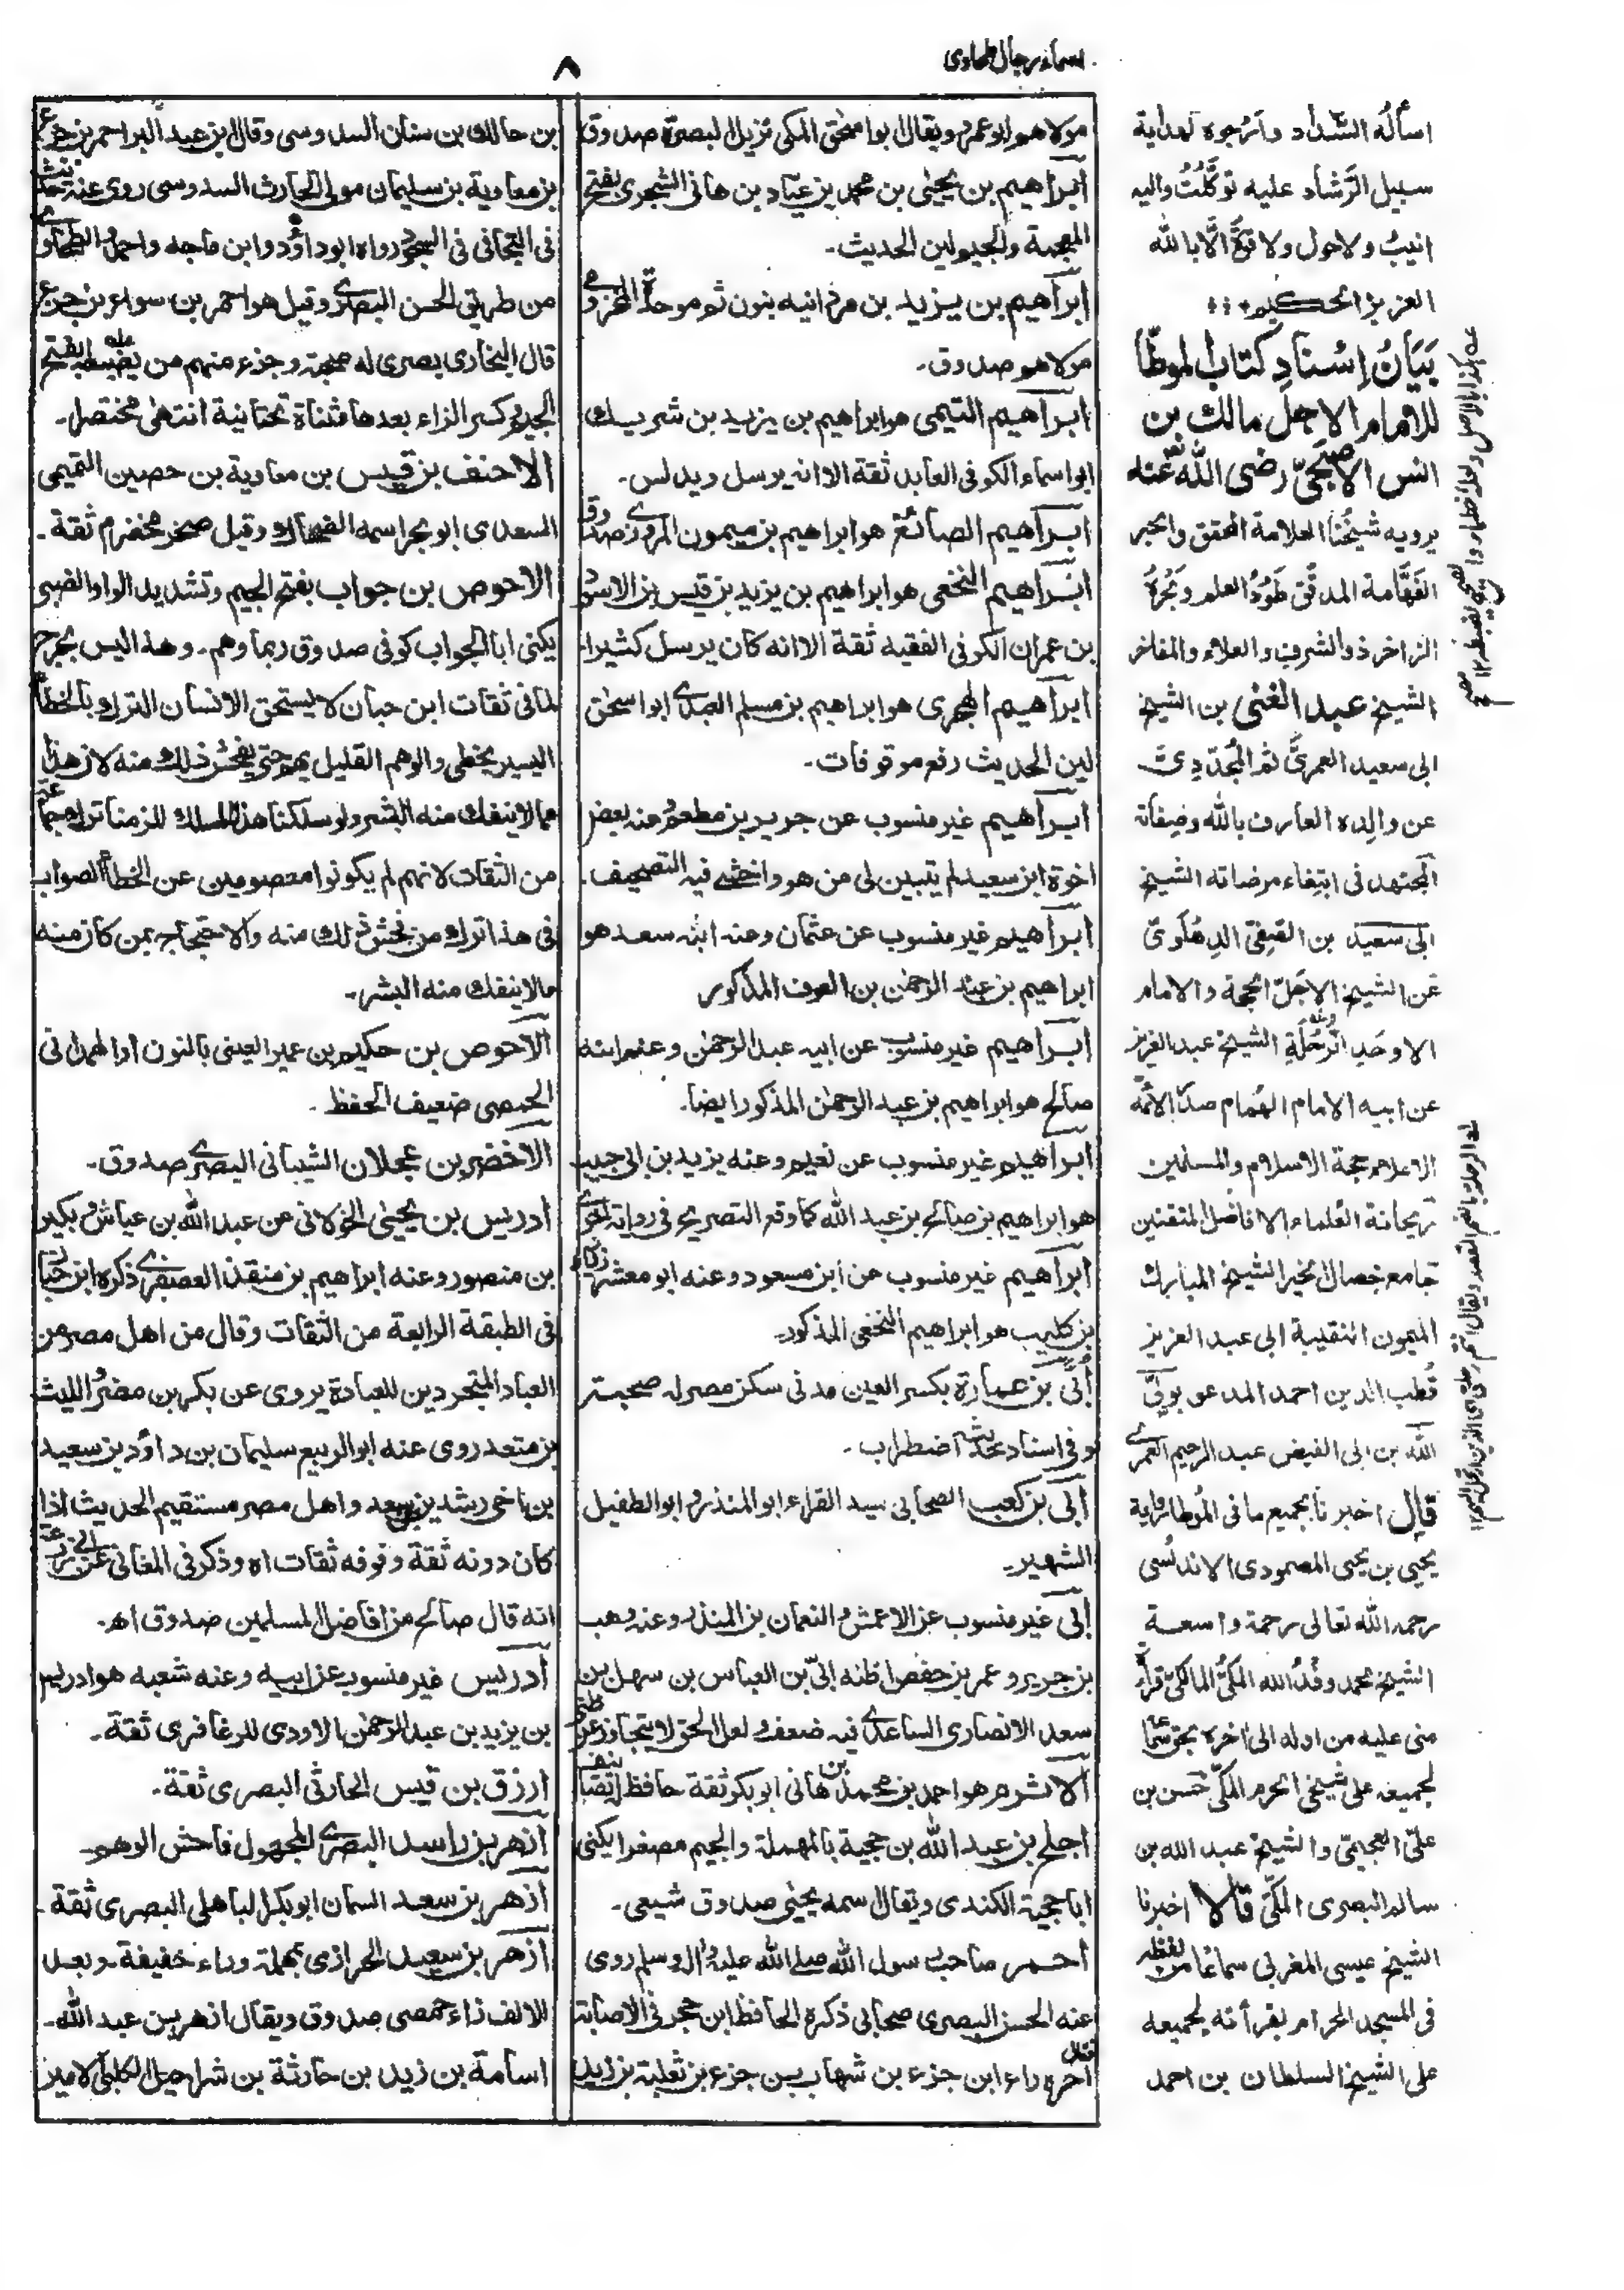 اسماء رجال طحاوى
٨
اسألُه السَّداد وارجوه لهداية
سبيل الرَّشاد عليه توكّلتُ واليه
انيبُ ولاحول ولا قوّةَ الّا بالله
العزيز الحكيم
بَيَانُ اِسْنادِ كتاب الموطّا
للامام الاجلّ مالك بن
انس الاصبَحِيّ رضى الله عنه
يرويه شيخُنا العلامة المحقق والحبر
الفَهَّامة المدقّق طَودُ العلم وبَحْرُهُ
الزاخر ذو الشرف والعلاء والمفاخر
الشيخ عبد الغنى بن الشيخ
ابى سعيد العمرىّ ثم المُجَدّدِىّ
عن والِده العارف بالله وصفاته
المجتهد فى ابتغاء مرضاته الشيخ
ابى سعيد بن الصَفِىّ الدِهْلَوىّ
عن الشيخ الاجَلّ الحجة والامام
الاوحَدِ الرُحْلَةِ الشيخ عبد العزيز
عن ابيه الامام الهُمام صدر الائمّة
الاعلام حجة الاسلام والمسلمين
رَيحانة العُلماء الافاضل المتقنين
جامع خصال الخير الشيخ المبارك
الميمون النقيبة ابى عبد العزيز
قُطب الدين احمد المدعو بوَلِىّ
الله بن ابى الفيض عبد الرحيم العمرى
قال اخبرنا بجميع ما فى المُوطا رواية
يحيى بن يحيى المصمودى الاندلُسى
رحمه الله تعالى رحمة واسعة
الشيخ محمد وَفْدُ الله المكىّ المالكىّ قراءةً
منى عليه من اوله الى اخره بحق سماعه
لجميعه على شيخَىِ الحرم المكّى حَسن بن
علىّ العجيمىّ والشيخ عبد الله بن
سالم البصرى المكّى قالا اخبرنا
الشيخ عيسى المغربى سماعًا من لفظه
فى المسجد الحرام بقرأته لجميعه
على الشيخ السلطان بن احمد
مولاهم ابو عمرو ويقال ابو اسحٰق المكى نزيل البصرة صدوق
ابراهيم بن يحيٰى بن محمد بن عبّاد بن هانى الشجرى بفتح
المعجمة والجيم لين الحديث۔
ابراهيم بن يزيد بن مردانبه بنون ثم موحدة المخزومى
مولاهم صدوق۔
ابراهيم التيمى هو ابراهيم بن يزيد بن شريك
ابو اسماء الكوفى العابد ثقة الا انه يرسل ويدلس۔
ابراهيم الصائغ هو ابراهيم بن ميمون المروزى صدوق
ابراهيم النخعى هو ابراهيم بن يزيد بن قيس بن الاسود
بن عمران الكوفى الفقيه ثقة الا انه كان يرسل كثيرا۔
ابراهيم الهجرى هو ابراهيم بن مسلم العبدى ابو اسحٰق
لين الحديث رفع موقوفات۔
ابراهيم غير منسوب عن جرير بن مطعم وعنه بعض
اخوة ابن سعيد لم يتبين لى من هو واخشى فيه التصحيف۔
ابراهيم غير منسوب عن عثمان وعنه ابنه سعد هو
ابراهيم بن عبد الرحمٰن بن العوف المذكور
ابراهيم غير منسوب عن ابيه عبد الرحمٰن وعنه ابنه
صالح هو ابراهيم بن عبد الرحمٰن المذكور ايضا۔
ابراهيم غير منسوب عن نعيم وعنه يزيد بن ابى حبيب
هو ابراهيم بن صالح بن عبد الله كما وقع التصريح فى رواية اخرى
ابراهيم غير منسوب عن ابن مسعود وعنه ابو معشر زياد
بن كليب هو ابراهيم النخعى المذكور۔
اُبَىّ بن عمارة بكسر العين مدنى سكن مصر له صحبة
وفى اسناد حديثه اضطراب۔
ابى بن كعب الصحابى سيد القراء ابو المنذر و ابو الطفيل
الشهير۔
ابى غير منسوب عن الاعمش و النعمان بن المنذر وعنه وهب
بن جرير وعمر بن حفص اظنه ابىّ بن العباس بن سهل بن
سعد الانصارى الساعدى فيه ضعف و لعل الحق لا يتجاوز عن ظنى
الاثرم هو احمد بن محمد بن هانى ابو بكر ثقة حافظ
اجلح بن عبد الله بن حجية بالمهملة والجيم مصغرا يكنى
ابا حجية الكندى ويقال اسمه يحيٰى صدوق شيعى۔
احمر صاحب رسول الله صلى الله عليه واله وسلم روى
عنه الحسن البصرى صحابى ذكره الحافظ ابن حجر فى الاصابة فقال
اخره راء ابن جزء بن شهاب بن جزء بن ثعلبة بن زيد
بن مالك بن سنان السدوسى وقال بن عبد البر احمر بن جزء
بن معاوية بن سليمان مولى الحارث السدوسى روى عنه حديث
فى التجافى فى السجود رواه ابو داؤد و ابن ماجه واحمد و الطحاوى
من طريق الحسن البصرى وقيل هو احمر بن سواء بن جزء
قال البخارى بصرى له صحبة وجزء منهم من يضبطه بفتح
الجيم وكسر الزاء بعدها مثناة تحتانية انتهٰى مختصرا۔
الاحنف بن قيس بن معاوية بن حصين التميمى
السعدى ابو بحر اسمه الضحاك وقيل صخر مخضرم ثقة۔
الاحوص بن جواب بفتح الجيم وتشديد الواو الضبى
يكنى ابا الجواب كوفى صدوق ربما وهم۔ وهذا ليس بجرح
لما فى ثقات ابن حبان لا يستحق الانسان الترك بالخطأ
اليسير يخطى والوهم القليل يهم حتى يفحش ذلك منه لان هذا
مما لا ينفك منه البشر ولو سلكنا هذا المسلك للزمنا ترك جماعة
من الثقات لانهم لم يكونوا معصومين عن الخطأ و الصواب
فى هذا ترك من فحش ذلك منه والاحتجاج بمن كان منه
مالا ينفك منه البشر۔
الاحوص بن حكيم بن عمير العينى بالنون او الهمدانى
الحمصى ضعيف الحفظ۔
الاخضر بن عجلان الشيبانى البصرى صدوق۔
ادريس بن يحيٰى الخولانى عن عبد الله بن عياش و بكير
بن منصور وعنه ابراهيم بن منقذ العصفرى ذكره ابن حبان
فى الطبقة الرابعة من الثقات وقال من اهل مصر من
العباد المتجردين للعبادة يروى عن بكر بن مضر و الليث
بن سعد روى عنه ابو الربيع سليمان بن داؤد بن سعيد
بن اخى رشد بن سعد واهل مصر مستقيم الحديث اذا
كان دونه ثقة وفوقه ثقات اه وذكر فى المغانى عن ابى زرعة
انه قال صالح من افاضل المسلمين صدوق اه۔
ادريس غير منسوب عن ابيه وعنه شعبه هو ادريس
بن يزيد بن عبد الرحمٰن الاودى الزعافرى ثقة۔
ارزق بن قيس الحارثى البصرى ثقة۔
ازهر بن راسد البصرى المجهول فاحش الوهم
ازهر بن سعد السمان ابو بكر الباهلى البصرى ثقة۔
ازهر بن سعيد الحرازى بمهملة وراء خفيفة۔ وبعد
الالف زاء حمصى صدوق ويقال ازهر بن عبد الله۔
اسامة بن زيد بن حارثة بن شراحيل الكلبى الامير